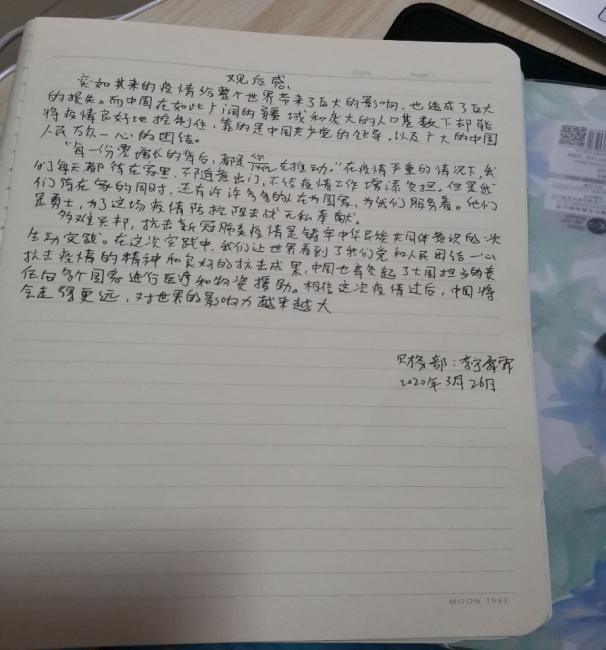 Date Page
观后感
突如其来的疫情给整个世界带来了巨大的影响,也造成了巨大
的损失。而中国在如此广阔的疆域和庞大的人口基数下却能
将疫情良好地控制住,靠的是中国共产党的领导,以及广大的中国
人民万众一心的团结。
"每一份票增长的背后,都是你在推动。"在疫情严重的情况下,我
们每天都待在家里,不随意出门,不给疫情工作增添负担。但是我
们待在家的同时,还有许许多多的人在为国家,为我们服务着。他们
是勇士,为了这场疫情防控阻击战无私奉献。
多难兴邦,抗击新冠肺炎疫情是铸牢中华民族共同体意识的一次
生动实践。在这次实践中,我们让世界看到了我们党和人民团结一心
抗击疫情的精神和良好的抗击成果,中国也肩负起了大国担当的责
任向多个国家进行医疗和物资援助。相信这次疫情过后,中国将
会走得更远,对世界的影响力越来越大
财务部:李
2020年3月26日
MOON TREE